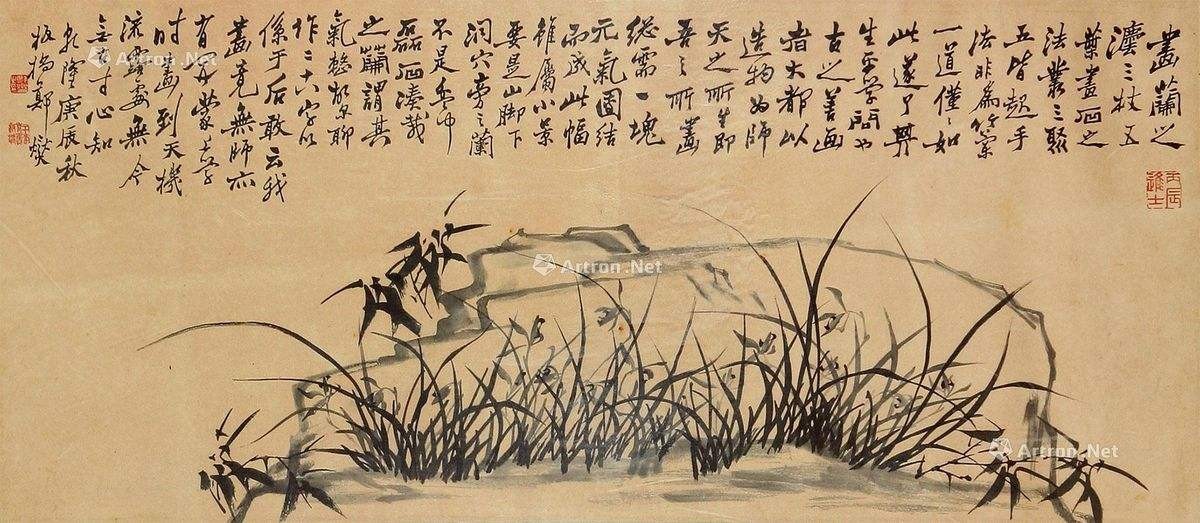 畫蘭之
灋三枝五
葉畫石之
法叢三聚
五皆起手
法非為
一道僅〻如
此遂了其
生平學問也
古之善画
者大都以
造物为師
天之所生即
吾之所畫
總需一塊
元氣團結
而成此幅
雖屬小景
要是山脚下
洞穴旁之蘭
不是盆中
磊石湊栽
之蘭謂其
氣整故尔聊
作二十八字以
係于后敢云我
畫竟無師亦
有開蒙上學
時畫到天機
流露處無今
無古寸心知
乾隆庚辰秋
板橋鄭燮
丙辰進士
Artron.Net
Artron.Net
Artron.Net
Artron.Net